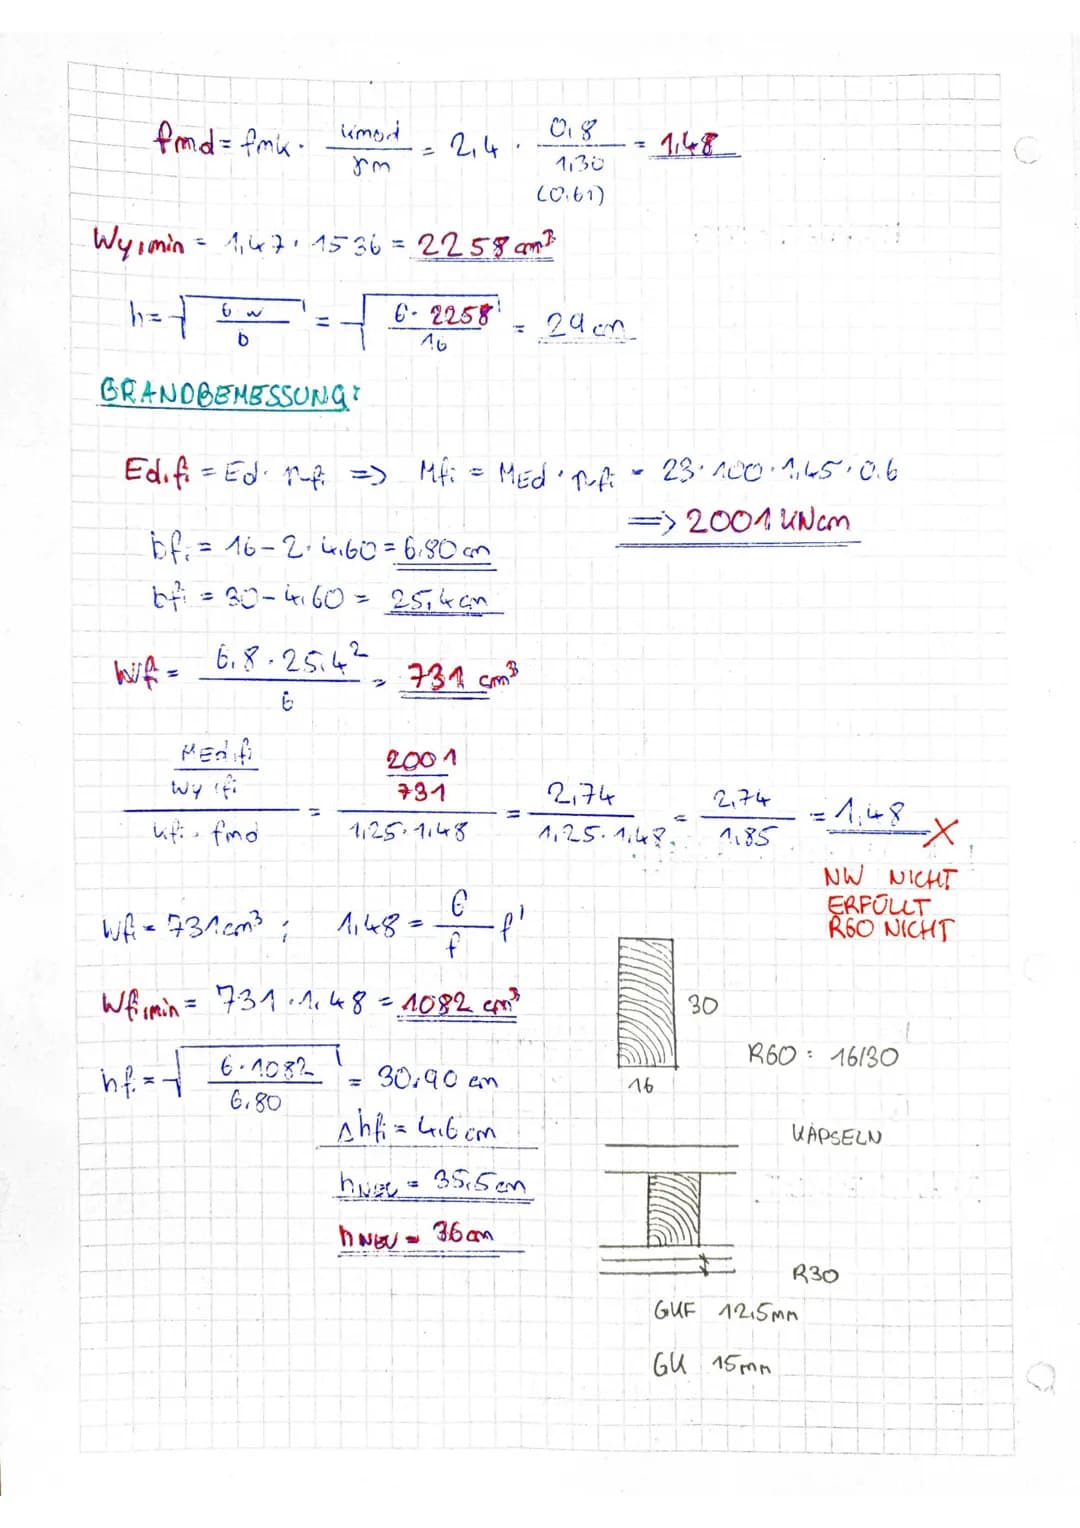 fmd = fmk · kmod / γm = 2,4 · 0,8 / 1,30 = 1,48
(0,61)
Wy,min = 1,47 · 1536 = 2258 cm³
h = √(6·w / b) = √(6 · 2258 / 16) = 29 cm
BRANDBEMESSUNG:
Ed,fi = Ed · ηfi => Mfi = MEd · ηfi = 23 · 100 · 1,45 · 0.6
=> 2001 kNcm
bfi = 16 - 2 · 4,60 = 6,80 cm
bfi = 30 - 4,60 = 25,4 cm
Wfi = 6,8 · 25,4² / 6 = 731 cm³
MEd,fi / Wy,fi / kfi · fmd = 2001 / 731 / 1,25 · 1,48 = 2,74 / 1,25 · 1,48 = 2,74 / 1,85 = 1,48 X
NW NICHT
ERFÜLLT
R60 NICHT
Wfi = 731 cm³ ; 1,48 = 6 / f f'
Wfi,min = 731 · 1,48 = 1082 cm³
hfi = √(6 · 1082 / 6,80) = 30,90 cm
Δhfi = 4,6 cm
hNEU = 35,5 cm
hNEU = 36 cm
30
16
R60 : 16/30
KAPSELN
R30
GKF 12,5mm
GK 15mm